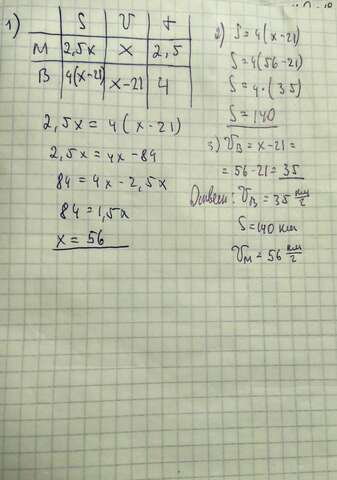 1)
S V t
М 2,5x x 2,5
В 4(x-21) x-21 4
2,5x = 4(x-21)
2,5x = 4x-84
84 = 4x-2,5x
84 = 1,5x
x = 56
2) S = 4(x-21)
S = 4(56-21)
S = 4·(35)
S = 140
3) Vв = x-21 =
= 56-21 = 35
Ответ: Vв = 35 км/ч
S = 140 км
Vм = 56 км/ч